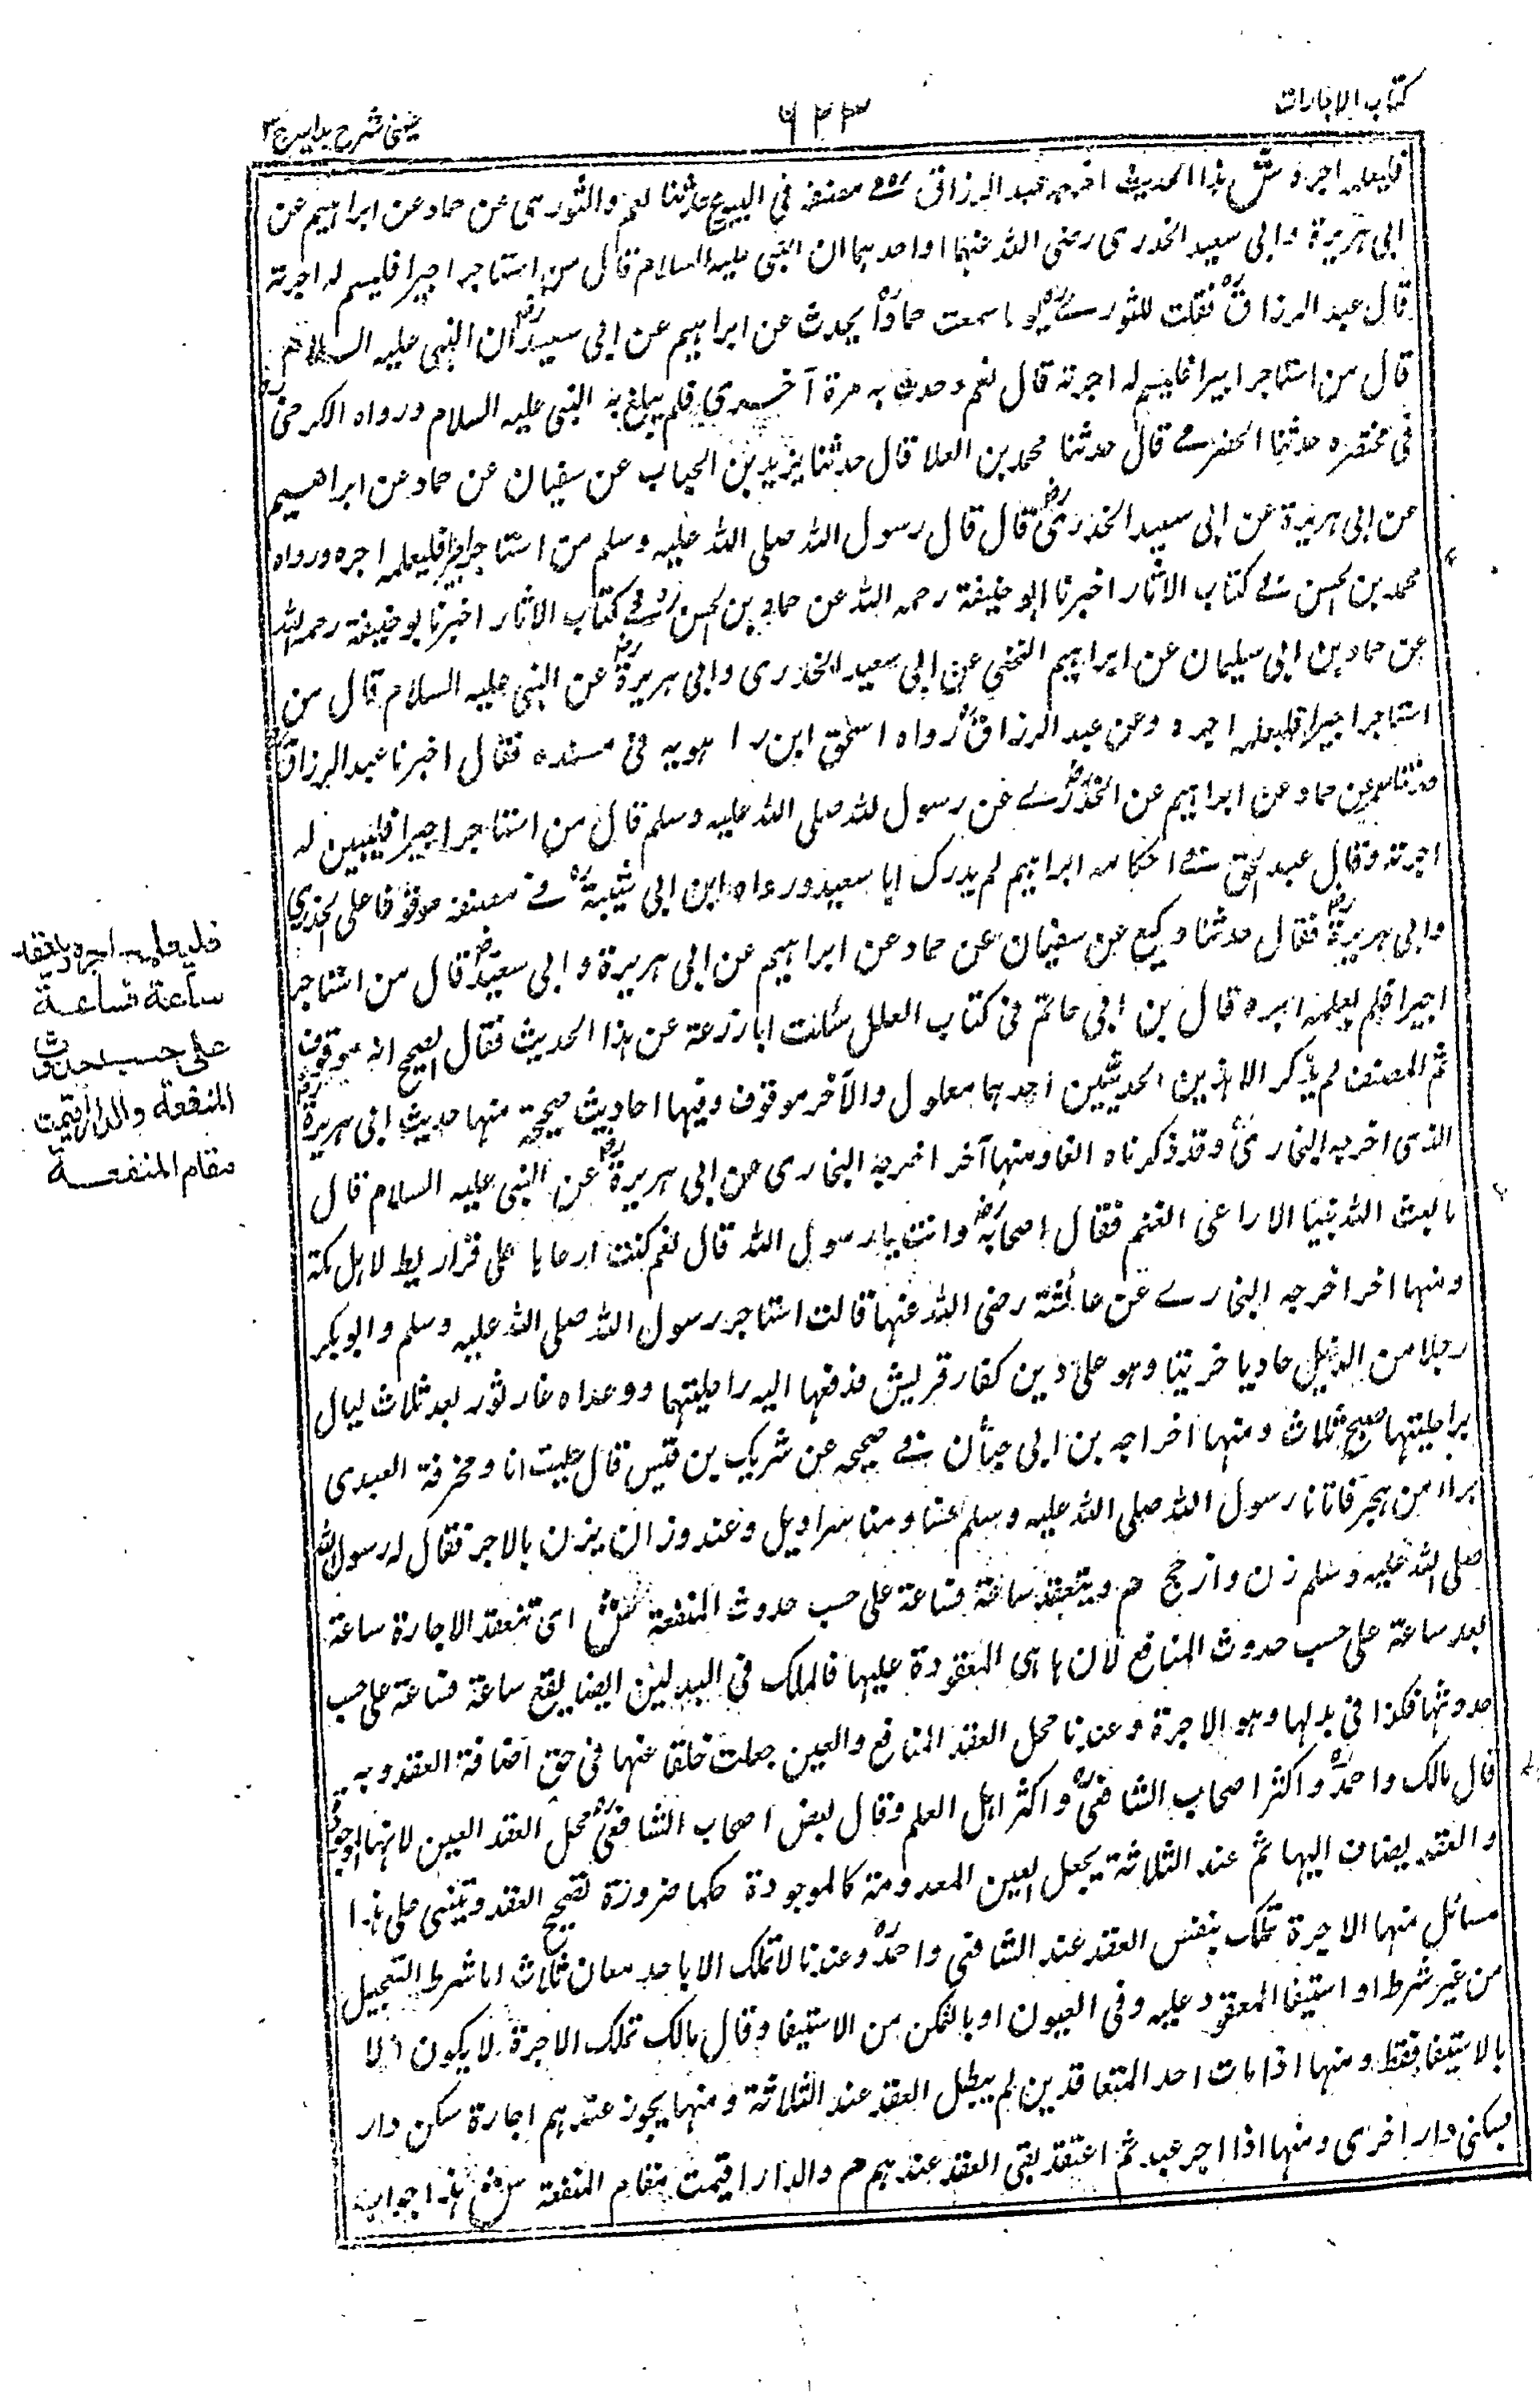 كتاب الاجارات
٦٢٣
عینی شرح ہدایہ ج ٣
فلیعلمہ اجرہ ش ہذا الحدیث اخرجہ عبد الرزاق رہ فے مصنفہ فی البیوع حدثنا معمر والثوری عن حماد عن ابراہیم عن
ابی ہریرۃ وابی سعید الخدری رضی اللہ عنہما او احدہما ان النبی علیہ السلام قال من استاجر اجیرا فلیسم لہ اجرتہ
قال عبد الرزاق رہ فقلت للثورے رہ یوما سمعت حمادا یحدث عن ابراہیم عن ابی سعید رض ان النبی علیہ السلام
قال من استاجر اجیرا فلیسم لہ اجرتہ قال نعم وحدث بہ مرۃ آخری فلم یبلغ بہ النبی علیہ السلام ورواہ الکرخی رہ
فی مختصرہ حدثنا الحضرمے قال حدثنا محمد بن العلا قال حدثنا یزید بن الحباب عن سفیان عن حماد عن ابراهیم
عن ابی ہریرۃ عن ابی سعید الخدری رض قال قال رسول اللہ صلی اللہ علیہ وسلم من استاجر اجیرا فلیعلمہ اجرہ ورواہ
محمد بن الحسن فے کتاب الاثار اخبرنا ابو حنیفۃ رحمہ اللہ عن حماد بن الحسن رہ فے کتاب الاثار اخبرنا ابو حنیفۃ رحمہ اللہ
عن حماد بن ابی سلیمان عن ابراہیم النخعی عن ابی سعید الخدری وابی ہریرۃ رض عن النبی علیہ السلام قال من
استاجر اجیرا فلیعلمہ اجرہ وعن عبد الرزاق رہ رواہ اسحٰق ابن را ہویہ فی مسندہ فقال اخبرنا عبد الرزاق
حدثنا معمر عن حماد عن ابراہیم عن الخدرے رض عن رسول اللہ صلی اللہ علیہ وسلم قال من استاجر اجیرا فلیبین لہ
اجرتہ وقال عبد الحق فے احکامہ ابراہیم لم یدرک ابا سعید ورواہ ابن ابی شیبۃ رہ فے مصنفہ موقوفا علی الخدری
وابی ہریرۃ رض فقال حدثنا وکیع عن سفیان عن حماد عن ابراہیم عن ابی ہریرۃ وابی سعید رض قال من استاجر
اجیرا فلم یعلمہ اجرہ قال بن ابی حاتم فی کتاب العلل سألت ابا زرعۃ عن ہذا الحدیث فقال الصحیح انہ موقوف
ثم المصنف لم یذکر الا ہذین الحدیثین احدہما معلول والآخر موقوف وفیہا احادیث صحیحۃ منہا حدیث ابی ہریرۃ رض
الذی اخرجہ البخاری وقد ذکرناہ انفا ومنہا آخر اخرجہ البخاری عن ابی ہریرۃ رض عن النبی علیہ السلام قال
ما بعث اللہ نبیا الا راعی الغنم فقال اصحابہ رض وانت یا رسول اللہ قال نعم کنت ارعاہا علی قراریط لاہل مکۃ
ومنہا اخر اخرجہ البخارے عن عائشۃ رضی اللہ عنہا قالت استاجر رسول اللہ صلی اللہ علیہ وسلم وابوبکر
رجلا من الدیل حادیا خریتا وہو علی دین کفار قریش فدفعہا الیہ راحلیتہما ووعداہ غار ثور بعد ثلاث لیال
براحلیتہما صبح ثلاث ومنہا اخراجہ بن ابی حبان فے صحیحہ عن شریک بن قیس قال جلبت انا ومخرفۃ العبدی
براء من ہجر فاتانا رسول اللہ صلی اللہ علیہ وسلم عنا ومنا سراویل وعند وزان یزن بالاجر فقال لہ رسول اللہ
صلی اللہ علیہ وسلم زن وارجح م وینعقد ساعۃ فساعۃ علی حسب حدوث المنفعۃ ش ای تنعقد الاجارۃ ساعۃ
بعد ساعۃ علی حسب حدوث المنافع لان ہا ہی المعقودۃ علیہا فالملک فی البدلین ایضا یقع ساعۃ فساعۃ علی حسب
حدوثہا فکذا فی بدلہا وہو الاجرۃ وعندنا محل العقد المنافع والعین جعلت خلفا عنہا فی حق اضافۃ العقد وبہ
قال مالک واحمد رہ واکثر اصحاب الشافعی رہ واکثر اہل العلم وقال بعض اصحاب الشافعی رہ محل العقد العین لانہا موجودۃ
والعقد یضاف الیہا ثم عند الثلاثۃ یجعل العین المعدومۃ کالموجودۃ حکما ضرورۃ تصحیح العقد وتبنی علی ہذا
مسائل منہا الاجرۃ تملک بنفس العقد عند الشافعی واحمد رہ وعندنا لا تملک الا باحد معان ثلاث اما شرط التعجیل
من غیر شرط او استیفا المعقود علیہ وفی العیون او بالتمکن من الاستیفا وقال مالک تملک الاجرۃ لا یکون الا
بالاستیفا فقط ومنہا اذا مات احد المتعاقدین لم یبطل العقد عند الثلاثۃ ومنہا یجوز عندہم اجارۃ سکن دار
بسکنی دار اخری ومنہا اذا اجر عبد ثم اعتقد بقی العقد عندہم م والدار اقیمت مقام المنفعۃ ش ہذا جواب
فلیعلمہ اجرہ وینعقد
ساعۃ فساعۃ
علی حسب حدوث
المنفعۃ والدار اقیمت
مقام المنفعۃ